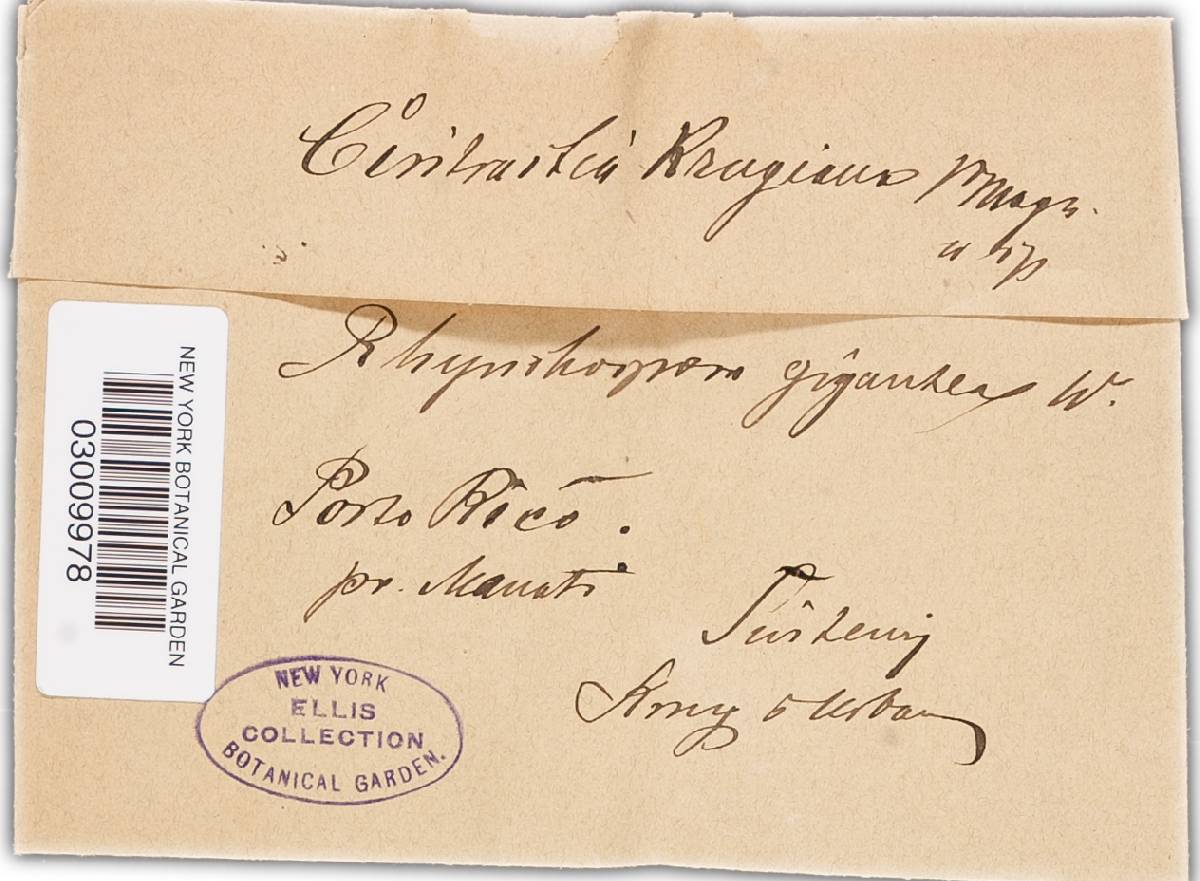 Cintractia Krugiana Magn.
n sp
Rhynchospora gigantea W.
Porto Rico.
pr. Manati
Sintenis
Krug & Urban
NEW YORK BOTANICAL GARDEN
03009978
NEW YORK
ELLIS
COLLECTION
BOTANICAL GARDEN.